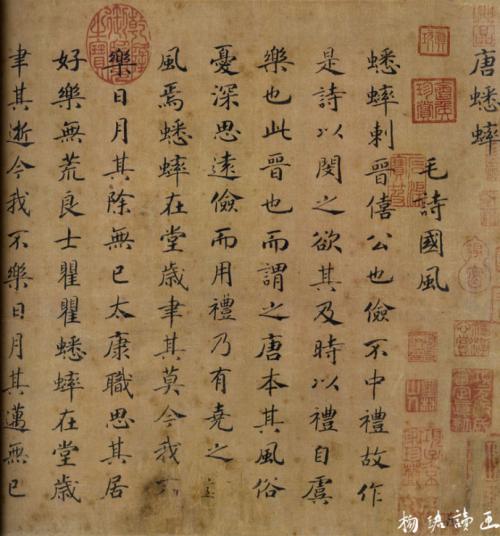 唐蟋蟀
毛詩國風
蟋蟀刺晉僖公也儉不中禮故作
是詩以閔之欲其及時以禮自虞
樂也此晉也而謂之唐本其風俗
憂深思遠儉而用禮乃有堯之
風焉蟋蟀在堂歲聿其莫今我
樂日月其除無已太康職思其居
好樂無荒良士瞿瞿蟋蟀在堂歲
聿其逝今我不樂日月其邁無已
讀画